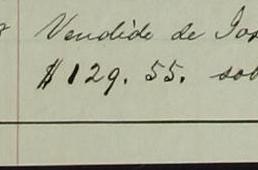 Vendido de Jos
$129.55. sob